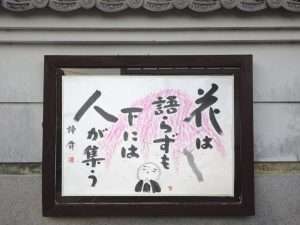 花は
語らずも
下には
人が集う